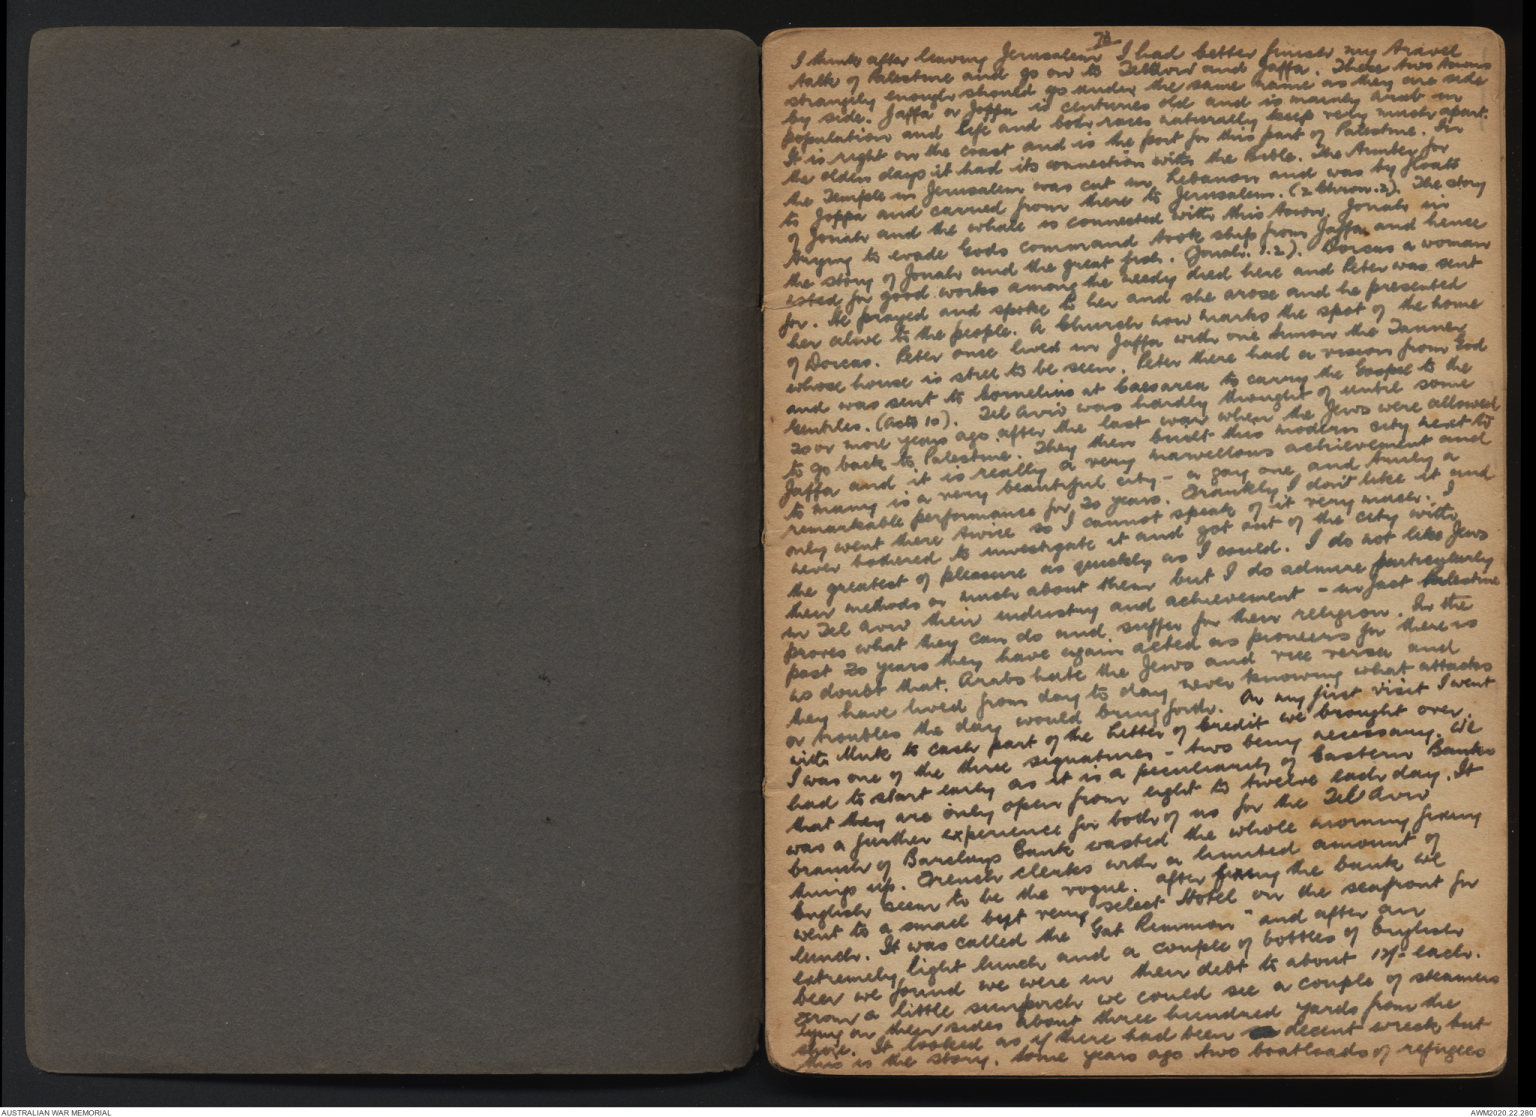 I think after leaving Jerusalem I had better finish my travel
talk of Palestine and go on to TelAviv and Jaffa. These two towns
strangely enough should go under the same name as they are side
by side. Jaffa or Joppa is centuries old and is mainly Arab in
population and life and both races naturally keep very much apart.
It is right on the coast and is the port for this part of Palestine. In
the olden days it had its connection with the Bible. The timber for
the Temple in Jerusalem was cut in Lebanon and was by floats
to Joppa and carried from there to Jerusalem. (2 Chron. 2). The story
of Jonah and the whale is connected with this town. Jonah in
trying to evade Gods command took ship from Jaffa and hence
the story of Jonah and the great fish. (Jonah. 1.2). Dorcas a woman
noted for good works among the needy died here and Peter was sent
for. He prayed and spoke to her and she arose and he presented
her alive to the people. A Church now marks the spot of the home
of Dorcas. Peter once lived in Jaffa with one Simon the Tanner
whose house is still to be seen. Peter there had a vision from God
and was sent to Cornelius at Caesarea to carry the Gospel to the
Gentiles. (Acts 10). Tel Aviv was hardly thought of until some
20 or more years ago after the last war when the Jews were allowed
to go back to Palestine. They then built this modern city next to
Jaffa and it is really a very marvellous achievement and
to many is a very beautiful city - a gay one and truly a
remarkable performance for 20 years. Frankly I don't like it and
only went there twice so I cannot speak of it very much. I
never bothered to investigate it and got out of the city with
the greatest of pleasure as quickly as I could. I do not like Jews
their methods or much about them but I do admire particularly
in Tel Aviv their industry and achievement - in fact Palestine
proves what they can do and suffer for their religion. In the
past 20 years they have again acted as pioneers for there is
no doubt that. Arabs hate the Jews and vice versa and
they have lived from day to day never knowing what attacks
or troubles the day would bring forth. On my first visit I went
with Mick to cash part of the Letter of Credit we brought over.
I was one of the three signatures - two being necessary. We
had to start early as it is a peculiarity of Eastern Banks
that they are only open from eight to twelve each day. It
was a further experience for both of us for the Tel Aviv
branch of Barclays Bank wasted the whole morning fixing
things up. French clerks with a limited amount of
English seem to be the vogue. After fixing the bank we
went to a small but very select Hotel on the seafront for
lunch. It was called the "Gat Rimmon" and after an
extremely light lunch and a couple of bottles of English
beer we found we were in their debt to about 12/- each.
From a little sunporch we could see a couple of steamers
lying on their sides about three hundred yards from the
shore. It looked as if there had been decent wreck but
this is the story. Some years ago two boatloads of refugees
AUSTRALIAN WAR MEMORIAL
AWM2020.22.280